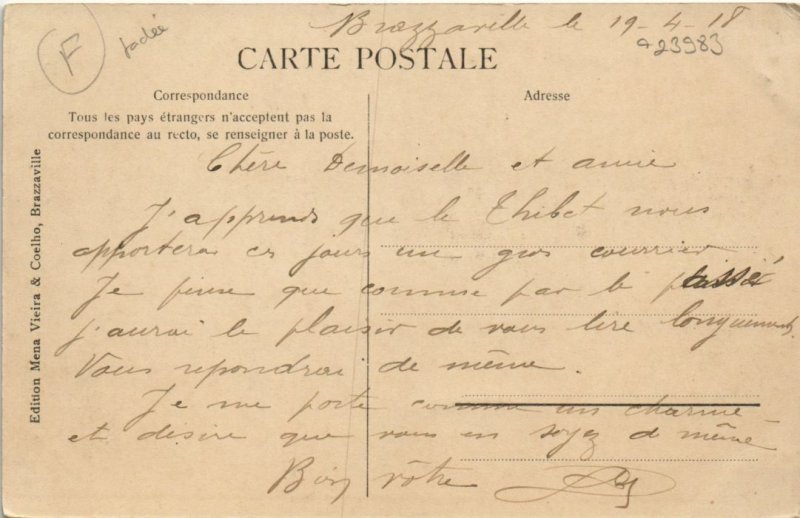 Brazzaville le 19-4-18
a23983
F
CARTE POSTALE
Correspondance
Adresse
Tous les pays étrangers n'acceptent pas la
correspondance au recto, se renseigner à la poste.
Edition Mena Vieira & Coelho, Brazzaville
Chère Demoiselle et amie
J'apprends que le Thibet nous
apportera ces jours un gros courrier
Je pense que comme par le passé
j'aurai le plaisir de vous lire longuement.
Vous repondrai de même.
Je me porte comme un charme
et désire que vous en soyez de même
Bien vôtre